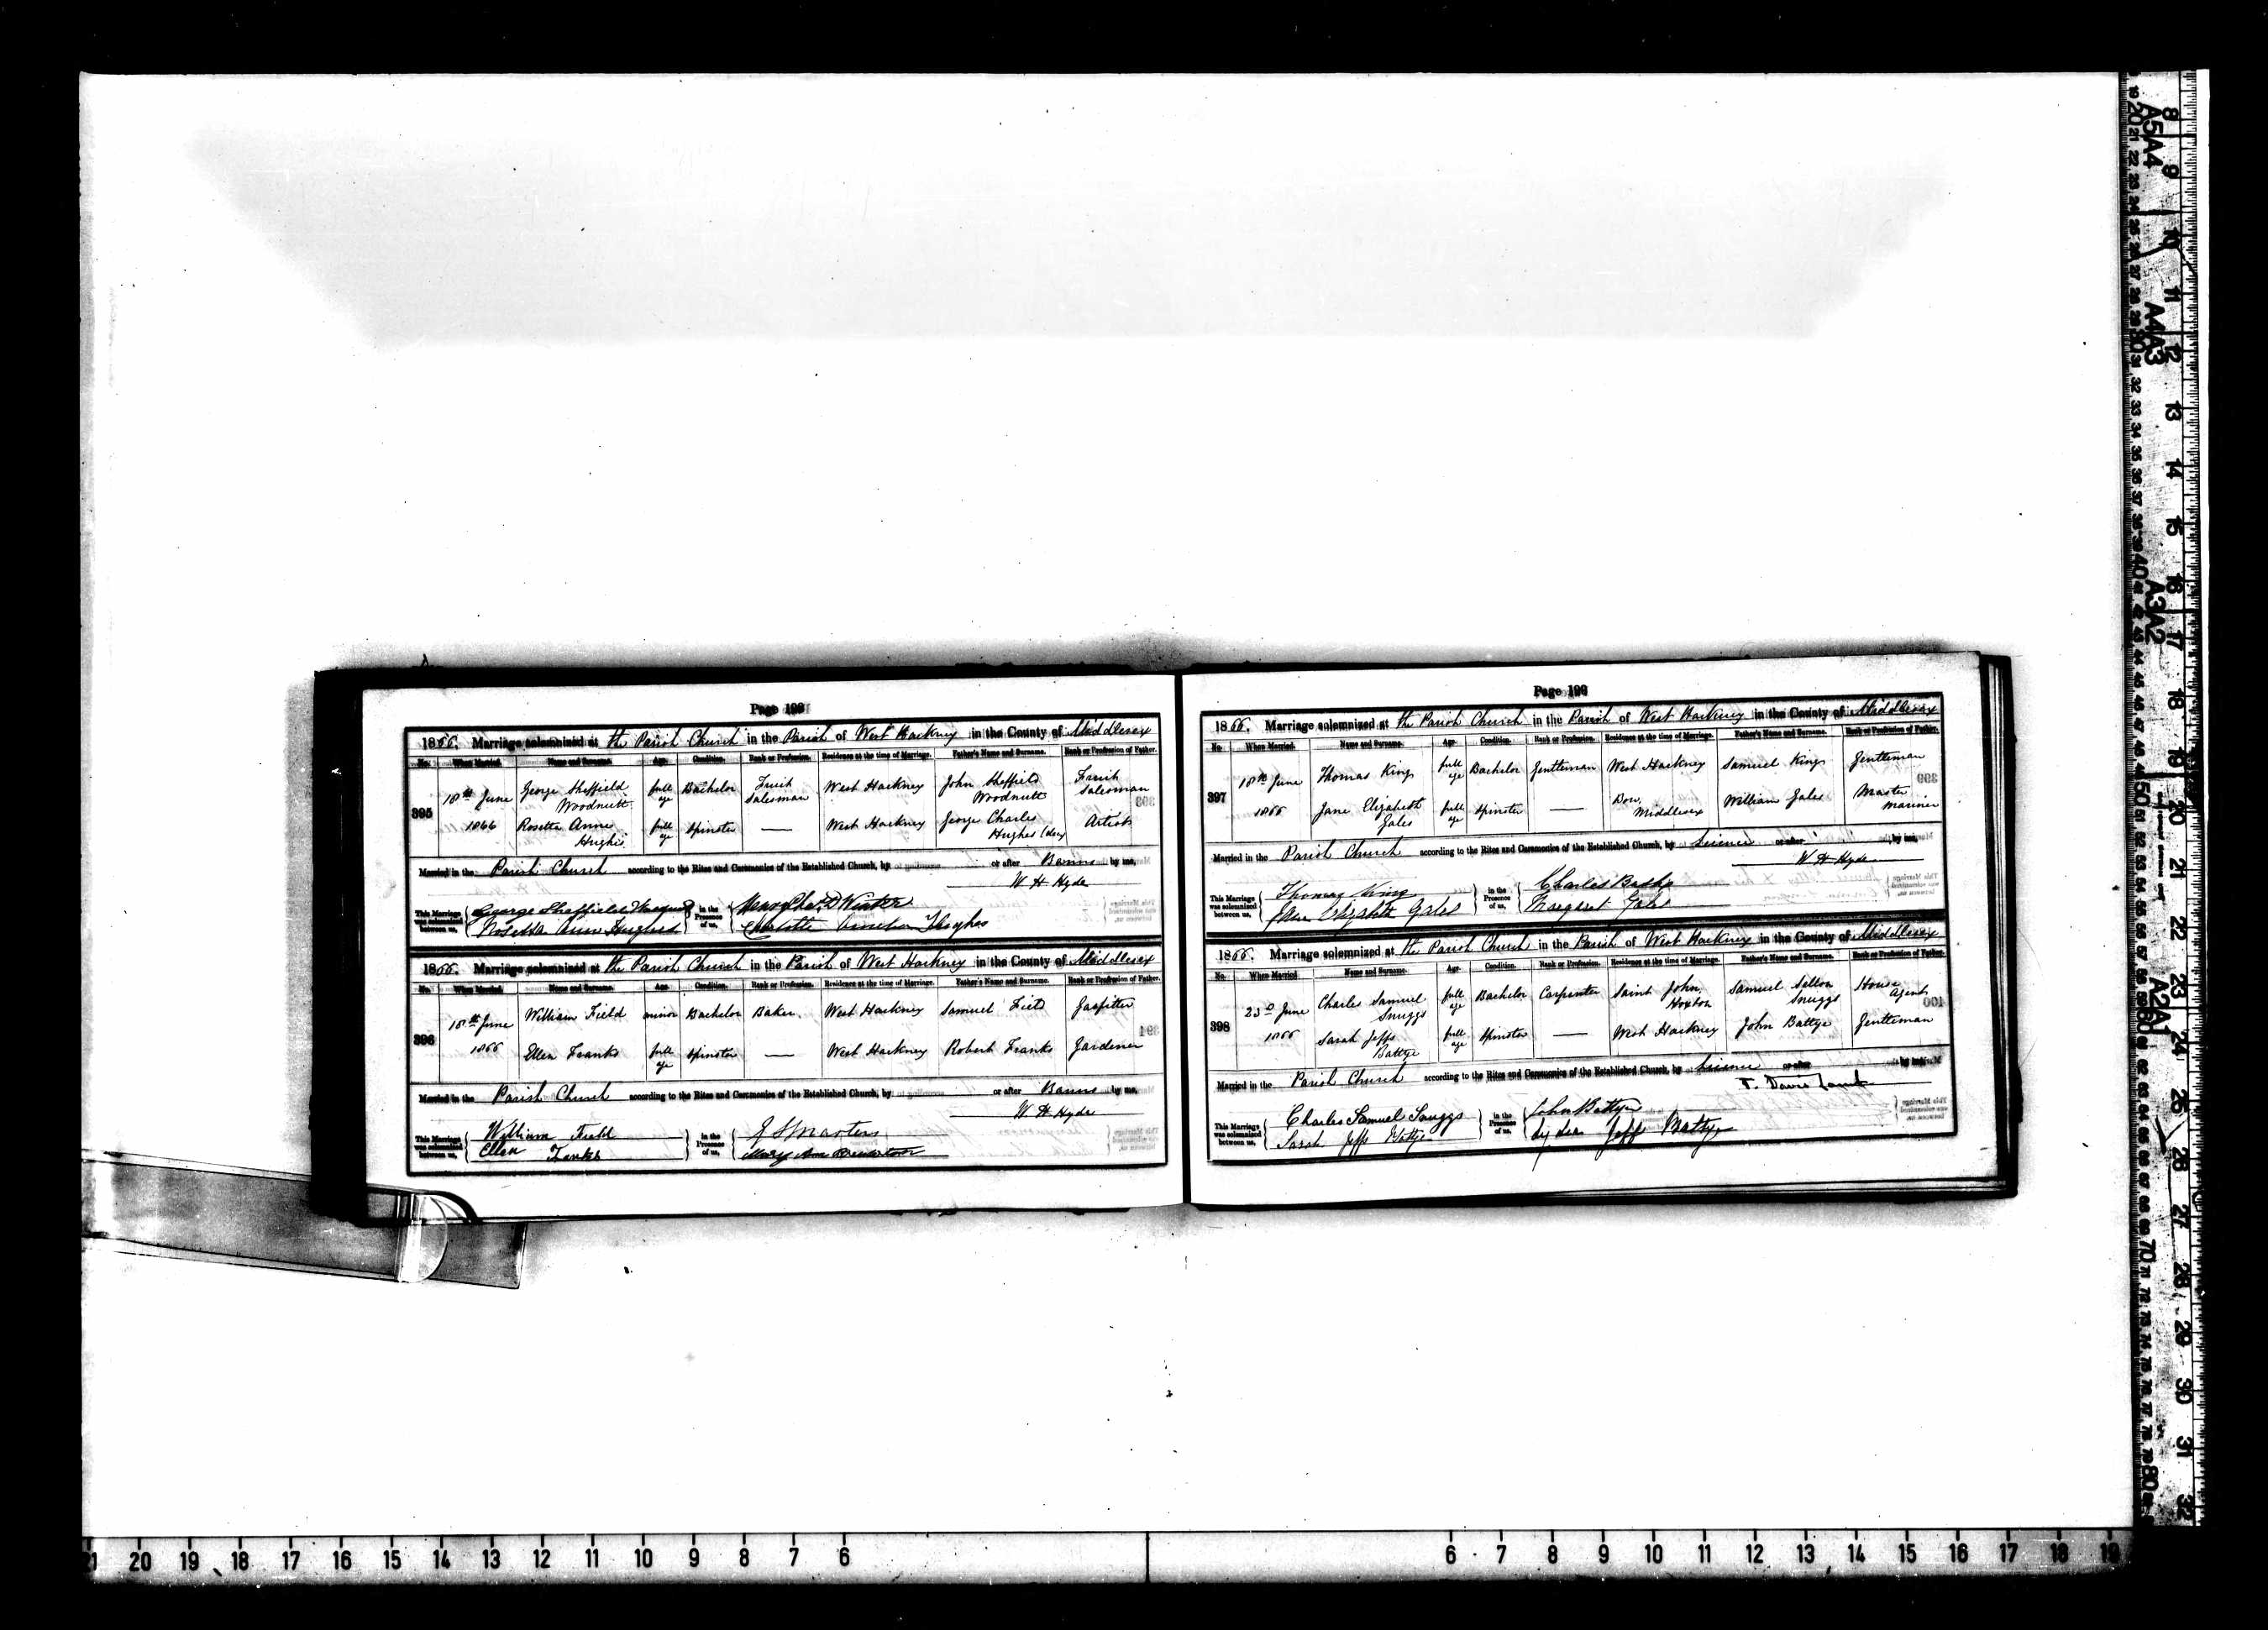 Page 199
1866. Marriage solemnized at the Parish Church in the Parish of West Hackney in the County of Middlesex
No. When Married. Name and Surname. Age. Condition. Rank or Profession. Residence at the time of Marriage. Father's Name and Surname. Rank or Profession of Father.
395 18th June 1866 George Sheffield Woodnutt full age Bachelor Fruit Salesman West Hackney John Sheffield Woodnutt Fruit Salesman
Rosetta Anne Hughes full age Spinster — West Hackney George Charles Hughes (dec) Artist
Married in the Parish Church according to the Rites and Ceremonies of the Established Church, by or after Banns by me,
W H Hyde
This Marriage was solemnized between us, George Sheffield Woodnutt in the Presence of us, Winter
Rosetta Ann Hughes Charlotte Hughes
1866. Marriage solemnized at the Parish Church in the Parish of West Hackney in the County of Middlesex
No. When Married. Name and Surname. Age. Condition. Rank or Profession. Residence at the time of Marriage. Father's Name and Surname. Rank or Profession of Father.
396 18th June 1866 William Field minor Bachelor Baker West Hackney Samuel Field Gasfitter
Ellen Franks full age Spinster — West Hackney Robert Franks Gardener
Married in the Parish Church according to the Rites and Ceremonies of the Established Church, by or after Banns by me,
W. H Hyde
This Marriage was solemnized between us, William Field in the Presence of us,
Ellen Franks Mary Ann
Page 199
1866. Marriage solemnized at the Parish Church in the Parish of West Hackney in the County of Middlesex
No. When Married. Name and Surname. Age. Condition. Rank or Profession. Residence at the time of Marriage. Father's Name and Surname. Rank or Profession of Father.
397 18th June 1866 Thomas King full age Bachelor Gentleman West Hackney Samuel King Gentleman
Jane Elizabeth Gales full age Spinster — Bow, Middlesex William Gales Master Mariner
Married in the Parish Church according to the Rites and Ceremonies of the Established Church, by Licence or after by me,
W H Hyde
This Marriage was solemnized between us, Thomas King in the Presence of us, Charles
Jane Elizabeth Gales Margaret Gales
1866. Marriage solemnized at the Parish Church in the Parish of West Hackney in the County of Middlesex
No. When Married. Name and Surname. Age. Condition. Rank or Profession. Residence at the time of Marriage. Father's Name and Surname. Rank or Profession of Father.
398 23d June 1866 Charles Samuel Snuggs full age Bachelor Carpenter Saint John, Hoxton Samuel Snuggs House Agent
Sarah Jeffs Battye full age Spinster — West Hackney John Battye Gentleman
Married in the Parish Church according to the Rites and Ceremonies of the Established Church, by Licence or after by me,
T. Davis Lamb
This Marriage was solemnized between us, Charles Samuel Snuggs in the Presence of us, John Battye
Sarah Jeffs Battye Lydia Jeffs Battye